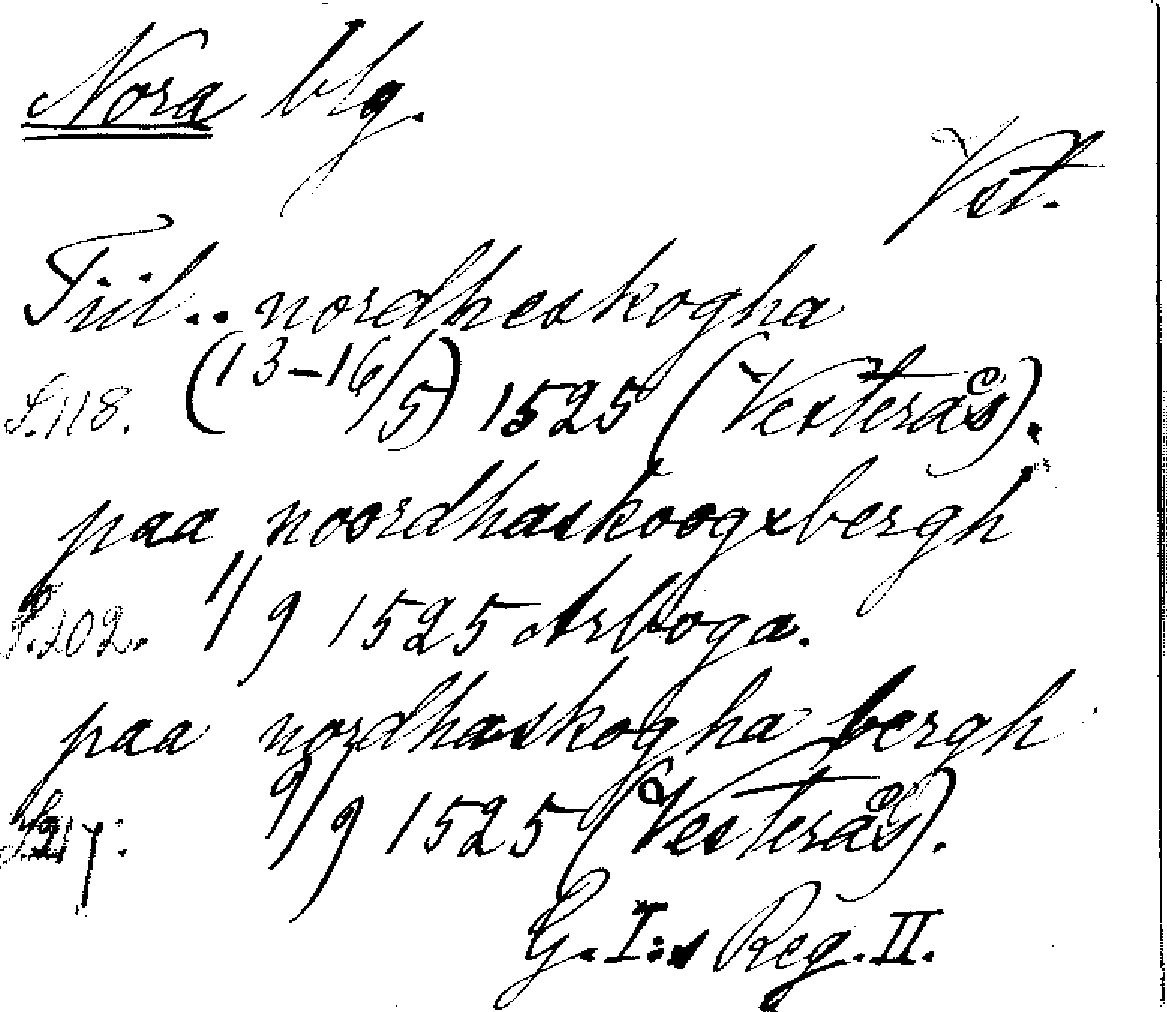 Nora blg.
Vst.
Tiil.. nordheskogha
S. 118. (13-16/5) 1525 (Vesterås).
paa noordhaskoogxbergh
S. 202. 1/9 1525 Arboga.
paa nordhaskogha bergh
9/9 1525 (Vesterås).
G. I:s Reg. II.